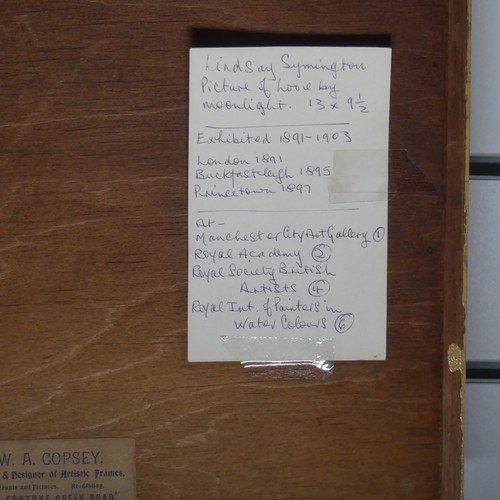 Lindsay Symington
Picture of Looe by
moonlight. 13 x 9 1/2
Exhibited 1891-1903
London 1891
Buckfastleigh 1895
Princetown 1897
At -
Manchester City Art Gallery ①
Royal Academy ②
Royal Society British
Artists ④
Royal Int. of Painters in
Water Colours ⑥
W. A. COPSEY,
& Designer of Artistic Frames,
and Pictures. Re-Gilding.
FORTUNE GREEN ROAD